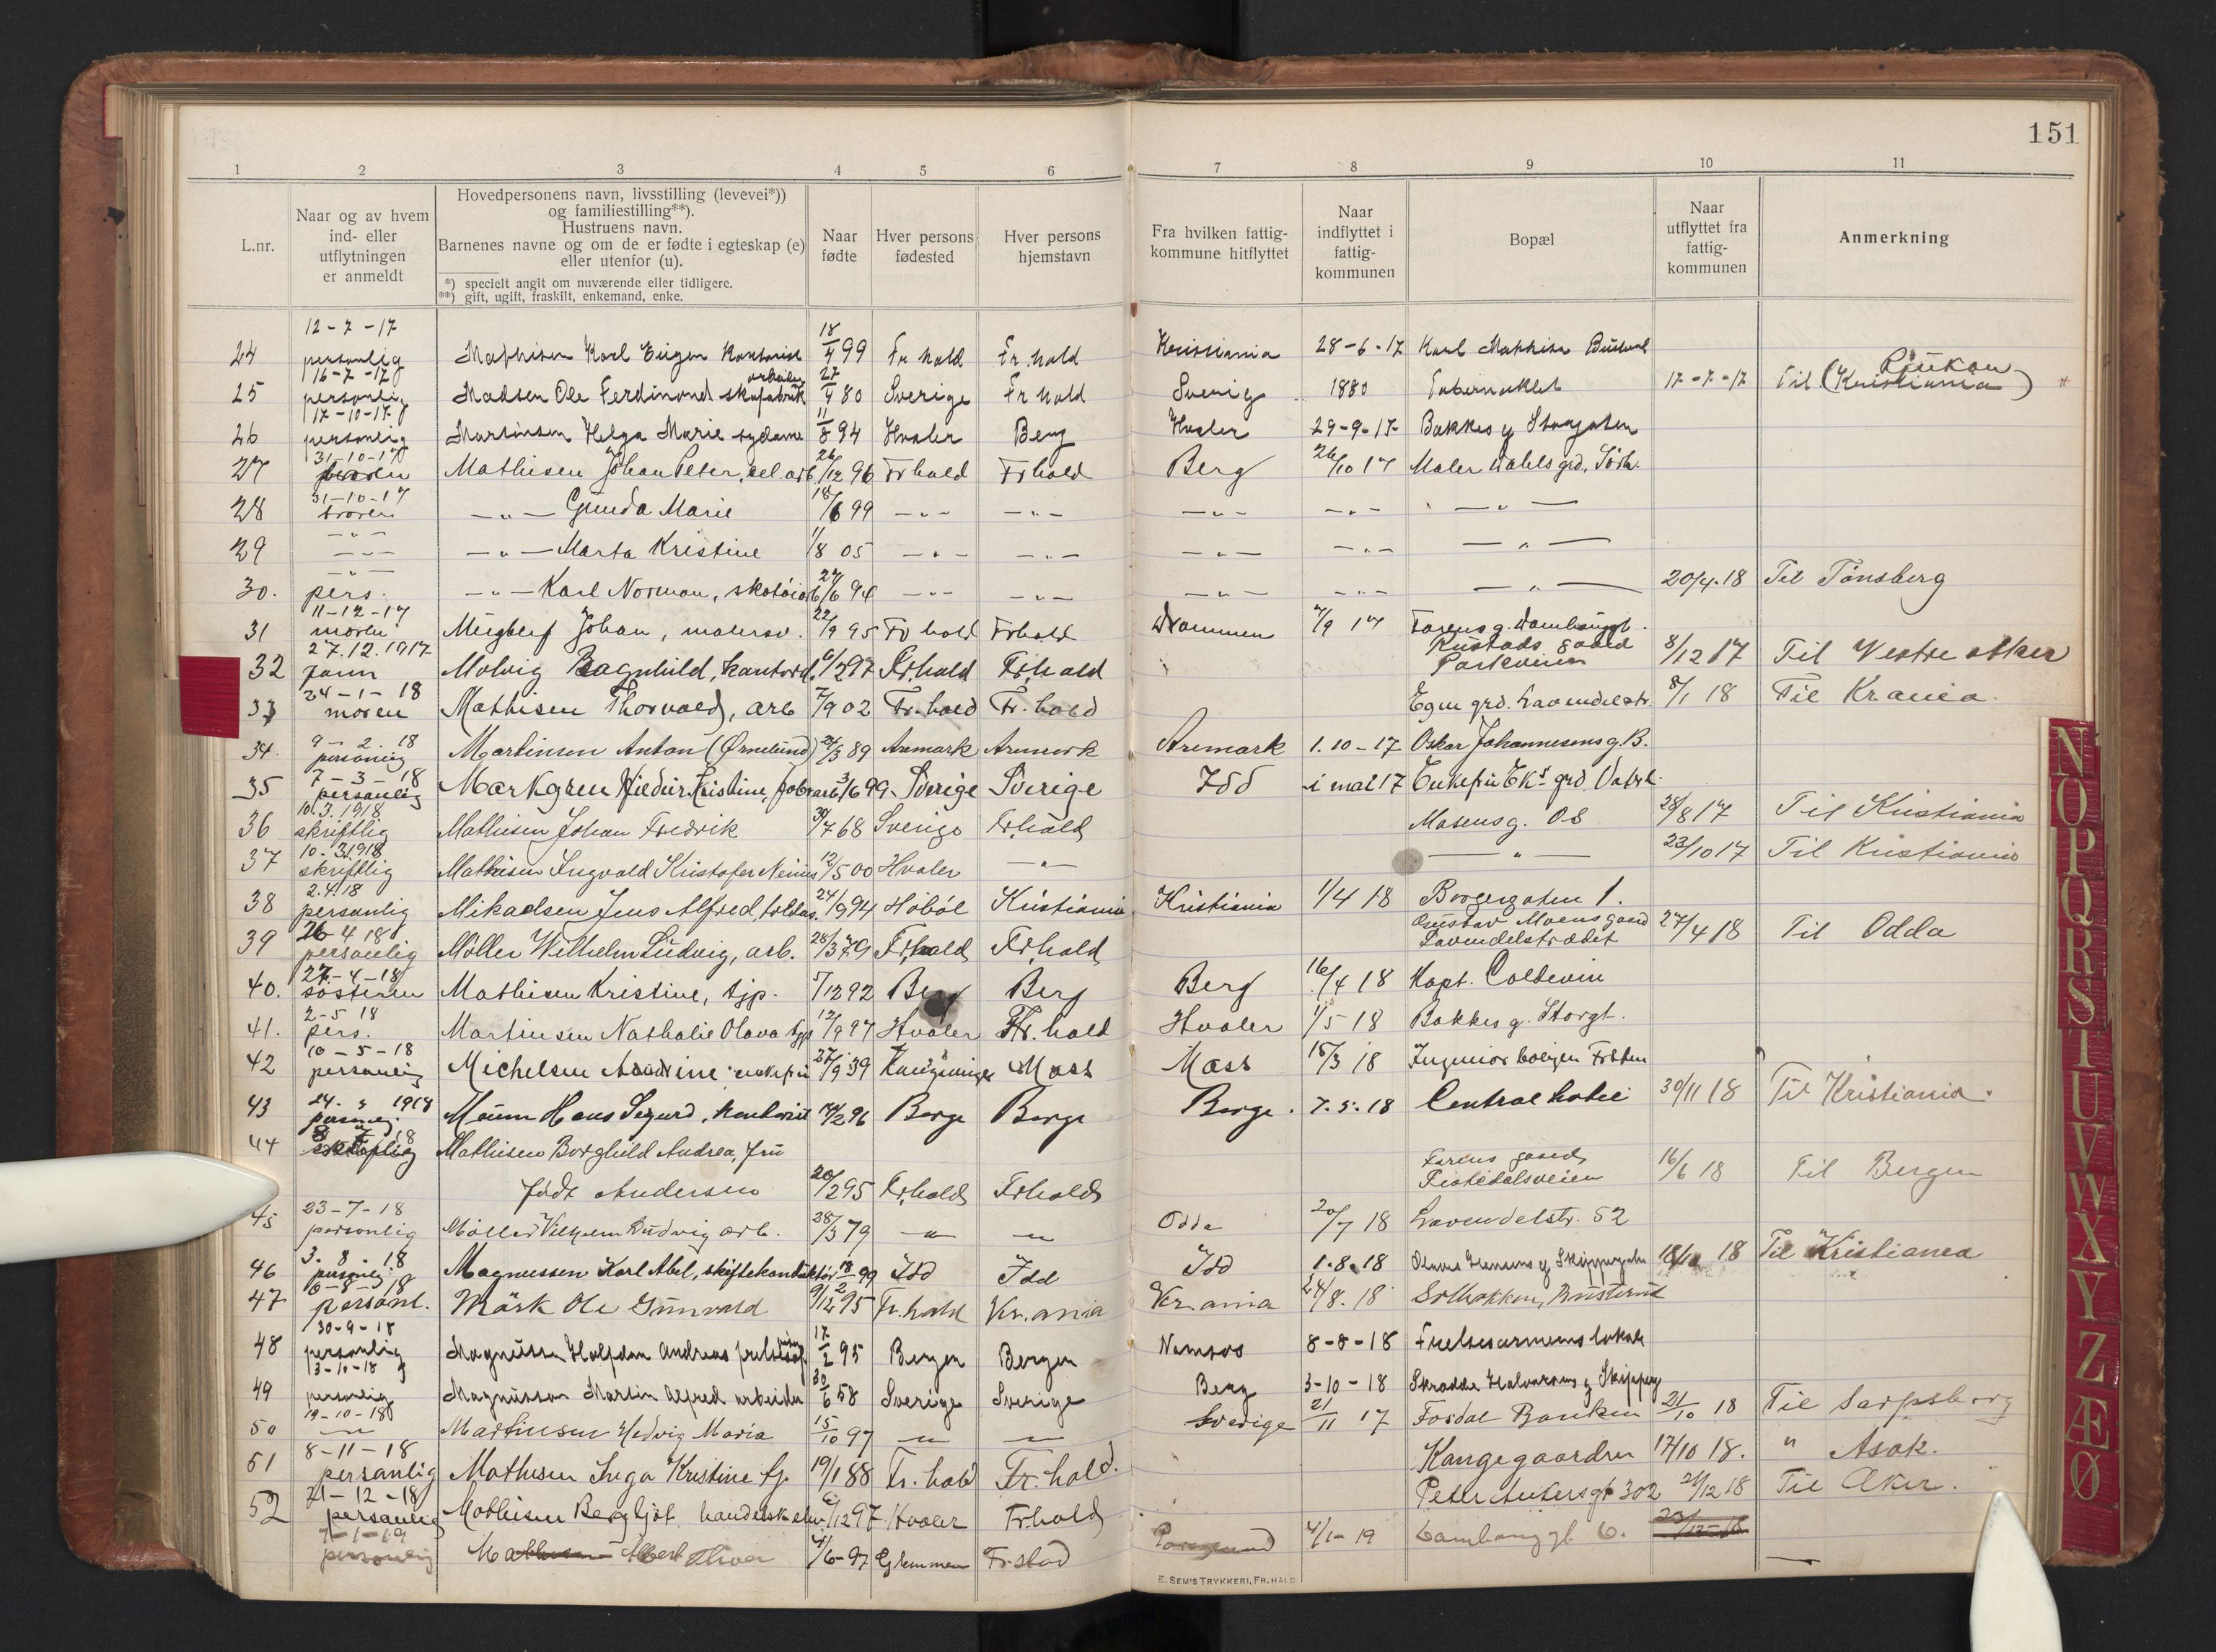 151
1 2 3 4 5 6 7 8 9 10 11
L.nr.
Naar og av hvem
ind- eller
utflytningen
er anmeldt
Hovedpersonens navn, livsstilling (levevei*))
og familiestilling**).
Hustruens navn.
Barnenes navne og om de er fødte i egteskap (e)
eller utenfor (u).
*) specielt angit om nuværende eller tidligere.
**) gift, ugift, fraskilt, enkemand, enke.
Naar
fødte
Hver persons
fødested
Hver persons
hjemstavn
Fra hvilken fattig-
kommune hitflyttet
Naar
indflyttet i
fattig-
kommunen
Bopæl
Naar
utflyttet fra
fattig-
kommunen
Anmerkning
12-7-17
24 personlig Mathisen Karl Eugen Kontorist 18/4 99 Fr hald Fr. hald Kristiania 28-6-17 Karl Mathisen
16-7-17 arbeider Rjukan
25 personlig Madsen Ole Ferdinand skofabrik 27/4 80 Sverige Fr hald Sverig 1880 Tabernaklet 17-7-17 Til (Kristiania)
17-10-17
26 personlig Martinsen Helga Marie sydame 11/8 94 Hvaler Berg Hvaler 29-9-17 Bakkes g Storgaten
31-10-17
27 broren Mathisen Johan Peter, sel. arb. 26/12 96 Frhald Frhald Berg 26/10 17 Maler Dahls grd.
31-10-17
28 broren -"- Gunda Marie 18/6 99 -"- -"- -"- -"- -"-
-"-
29 -"- -"- Marta Kristine 1/8 05 -"- -"- -"- -"- -"-
-"-
30. pers. -"- Karl Norman, skotøiarb 27/6 94 -"- -"- -"- -"- -"- 20/4.18 Til Tønsberg
11-12-17
31 moren Johan, malersv. 22/9 95 Fr hald Frhald Drammen 7/9 17 Torens g. Damhaugt.
27.12.1917 Rustads gaard
32 Molvig Ragnhild, kontord. 6/2 97 Fr.hald Fr.hald Parkveien 8/12 17 Til Vestre Aker
24-1-18
33 moren Mathisen Thorvald, arb 7/9 02 Fr. hald Fr. hald Egne grd. Lavendelstr. 8/1 18 Til Krania.
9-2.18
34. personlig Martinsen Anton (Ørnelund) 24/3 89 Aremark Aremark Aremark 1.10-17 Oskar Johannesens g. B.
7-3-18
35 personlig Markgren Kristine, fabr arb 3/6 99 Sverige Sverige Idd i mai 17 Enkefru
10.3.1918
36 skriftlig Mathisen Johan Fredrik 30/7 68 Sverige Fr,hald Masensg. 28/8 17 Til Kristiania
10.3.1918
37 skriftlig Mathisen Ingvald Kristofer 12/5 00 Hvaler -"- -"- 23/10 17 Til Kristiania
2.4.18
38 personlig Mikaelsen Jens Alfred, 24/9 94 Hobøl Kristiania Kristiania 1/4 18 Borgergaten 1.
26 4 18 Gustav Moens gaard
39 personlig Møller Wilhelm Ludvig, arb. 28/3 79 Fr,hald Fr,hald Lavendelstrædet 27/4 18 Til Odda
27-4-18
40. søsteren Mathisen Kristine, tjp. 5/12 92 Berg Berg Berg 16/4 18 Kapt. Coldevin
2-5 18
41. pers. Martinsen Nathalie Olava tjp 12/9 97 Hvaler Fr. hald Hvaler 1/5 18 Bakkes g. Storgt.
10-5-18
42 personlig Michelsen enkefru 27/9 39 Moss Moss 15/3 18 Ingeniør
24. 5 1918
43 Hans Sigurd, kontorist 14/2 96 Borge Borge Borge. 7.5.18 Central hotel 30/11 18 Til Kristiania.
44 skriftlig Mathisen Borghild Andrea, fru
Torens gaard,
født Andersen 20/2 95 Frhald Frhald Tistedalsveien 16/6 18 Til Bergen
23-7-18
45 personlig Møller Vilhelm Ludvig arb. 28/3 79 -"- -"- Odda 20/7 18 Lavendelstr. 52
3.8.18
46 personlig Magnussen Karl Abel, skiftekonduktør 18/2 99 Idd Idd Idd 1.8.18 Hansens g Skippergaten 18 Til Kristiania
47 personl. Mørk Ole 9/12 95 Fr.hald Kr.ania Kr.ania 24/8.18 Solbakken,
30-9-18
48 personlig Magnussen Halfdan Andreas 17/2 95 Bergen Bergen Namsos 8-8-18 Frelsesarmeens lokale
3-10-18
49 personlig Magnusson Martin Alfred arbeider 30/6 58 Sverige Sverige Berg 3-10-18 Skrædder Halvorsens g Skipperg
19-10-18
50 -"- Martinsen Hedvig Maria 15/10 97 -"- -"- Sverige 21/11 17 Fosdal Banken 21/10 18 Til Sarpsborg
8-11-18
51 personlig Mathisen Inga Kristine tj. 19/1 88 Fr. hald Fr. hald. Kangegaarden 17/10 18. " Asak.
21-12-18
52 personlig Mathisen Bergljot handelsk elev 6/12 97 Hvaler Frhald Peder Ankersgt 302 21/12 18 Til Aker.
7-1-19
personlig Mathisen Albert 4/6-97 Glemmen Fr.stad Porsgrund 4/1-19 Damhaugt. 6. 23/12-18
E. SEM'S TRYKKERI, FR.HALD
N
O
P
Q
R
S
T
U
V
W
X
Y
Z
Æ
Ø